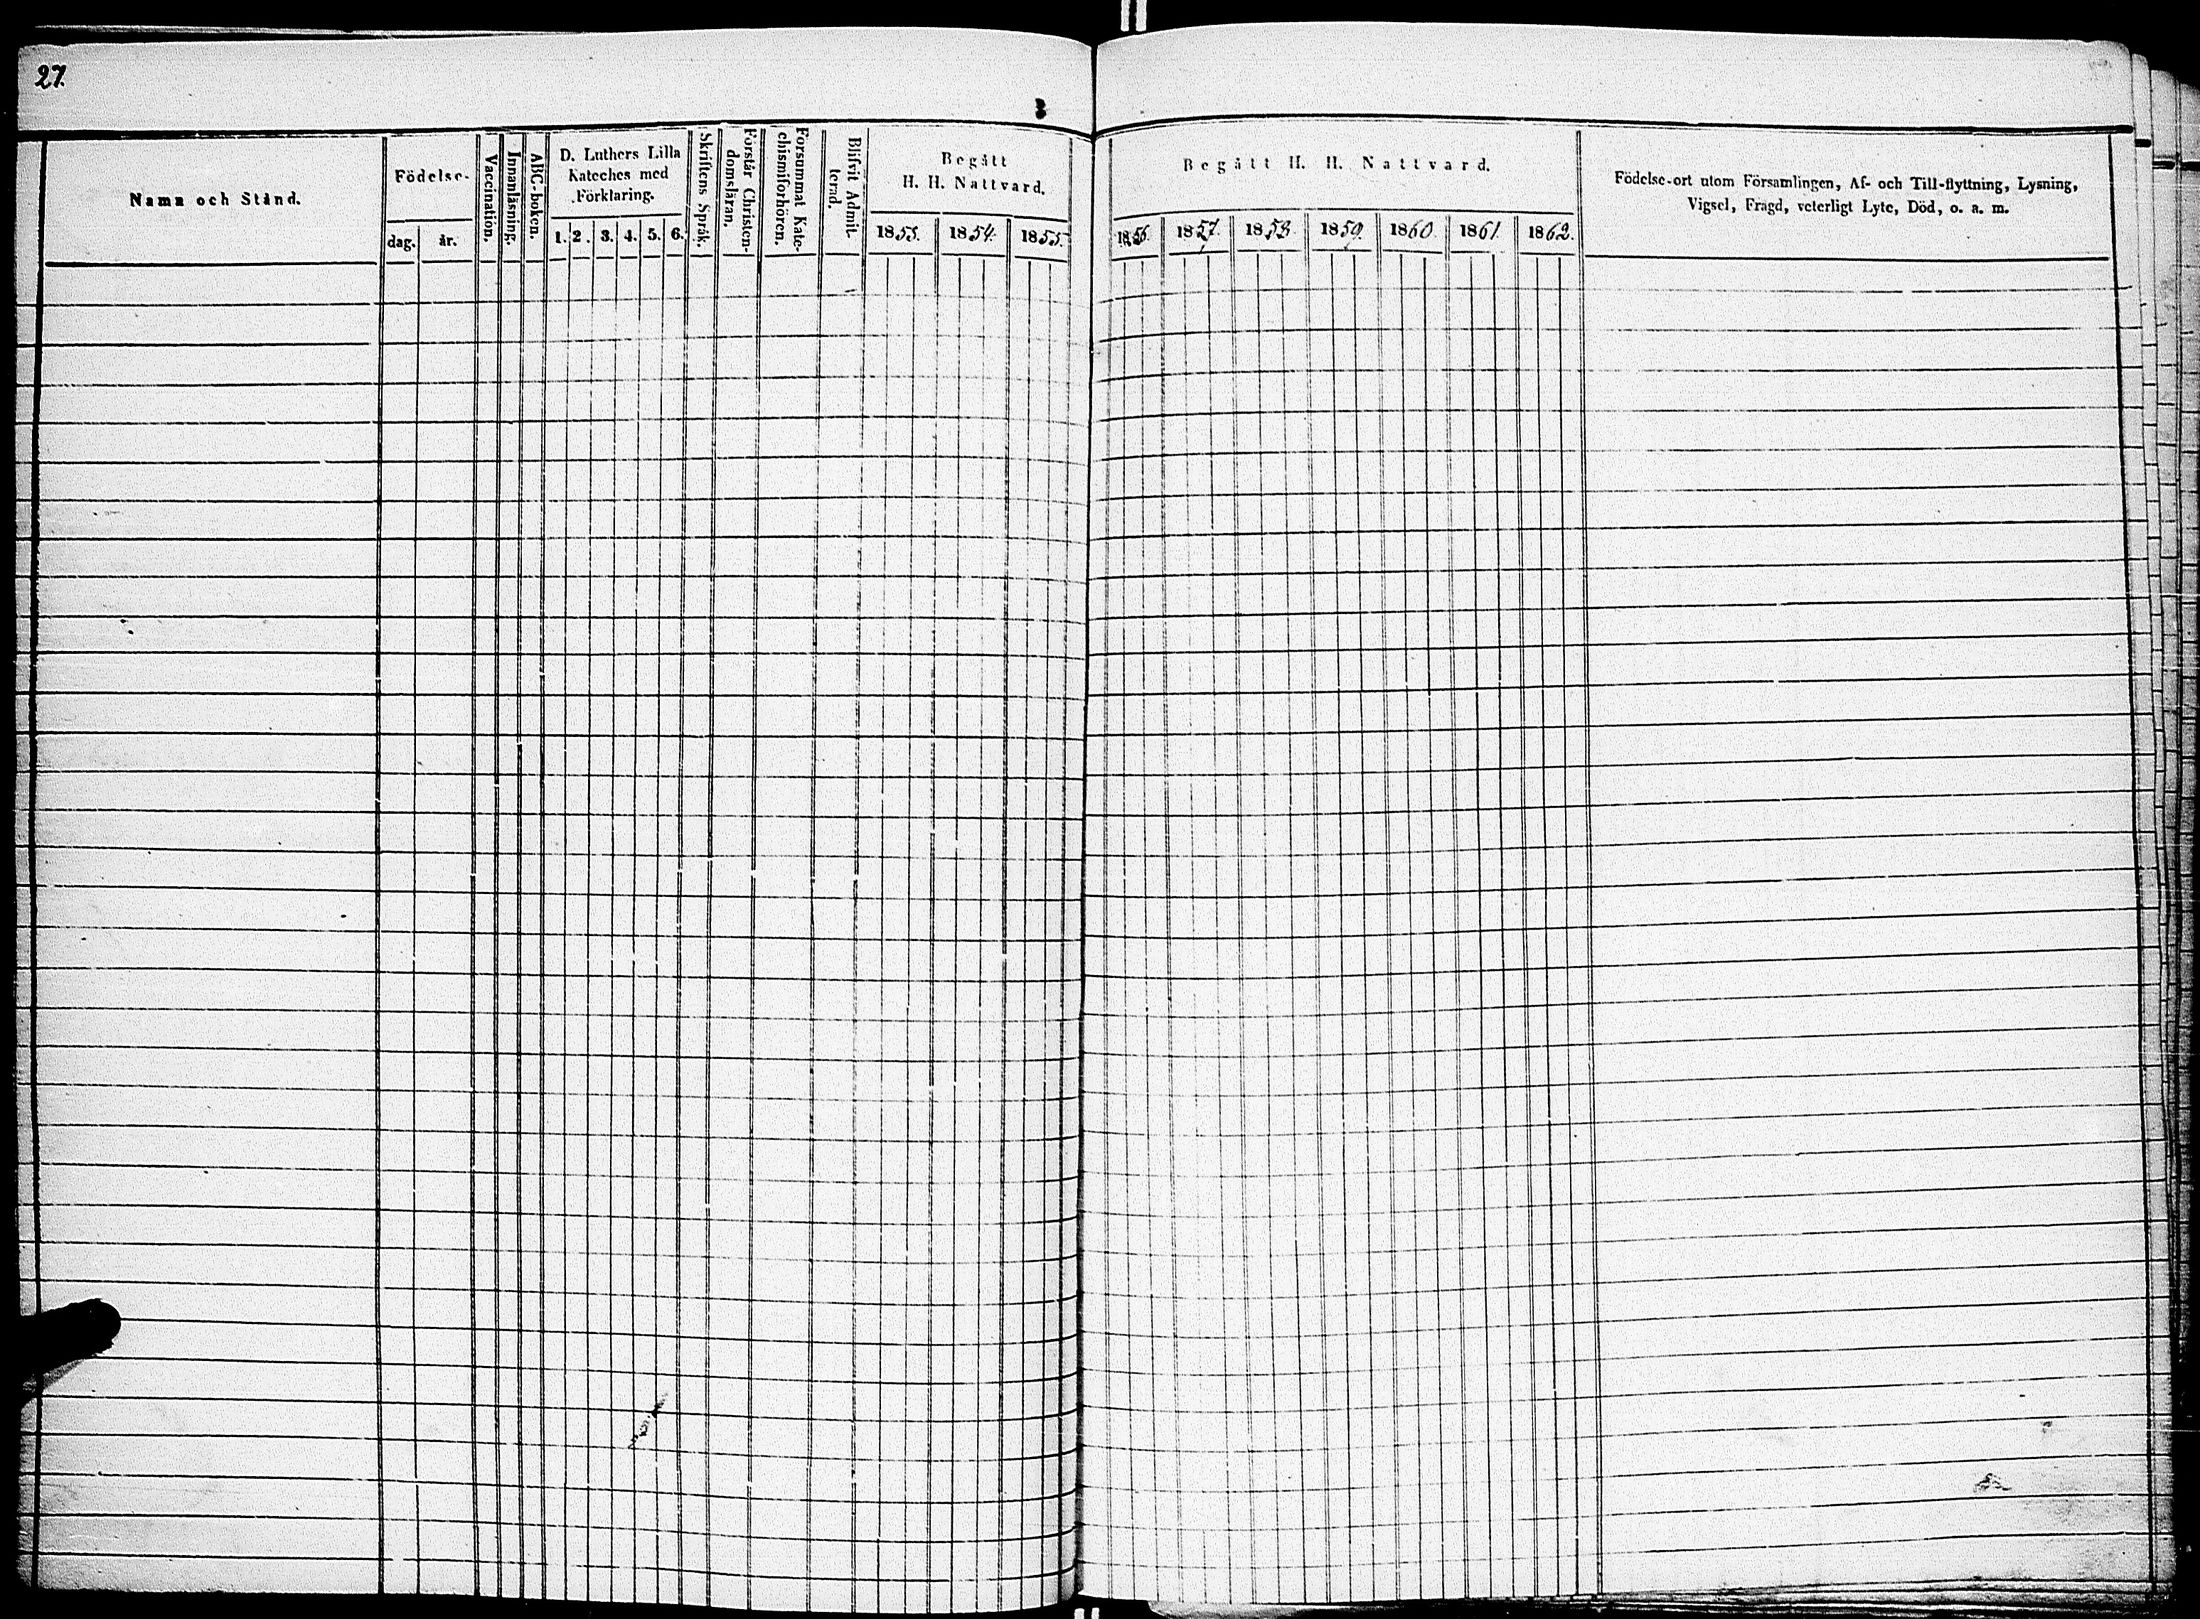 27.
Namn och Stånd.
Födelse-
dag.
år.
Vaccination.
Innanläsning.
ABC-boken.
D. Luthers Lilla
Kateches med
Förklaring.
1. 2. 3. 4. 5. 6.
Skriftens Språk.
Förstår Christen-
domsläran.
Försummat Kate-
chismiförhören.
Blifvit Admit-
terad.
Begått
H. H. Nattvard.
1853. 1854. 1855.
Begått H. H. Nattvard.
1856. 1857. 1858. 1859. 1860. 1861. 1862.
Födelse-ort utom Församlingen, Af- och Till-flyttning, Lysning,
Vigsel, Frägd, veterligt Lyte, Död, o. a. m.